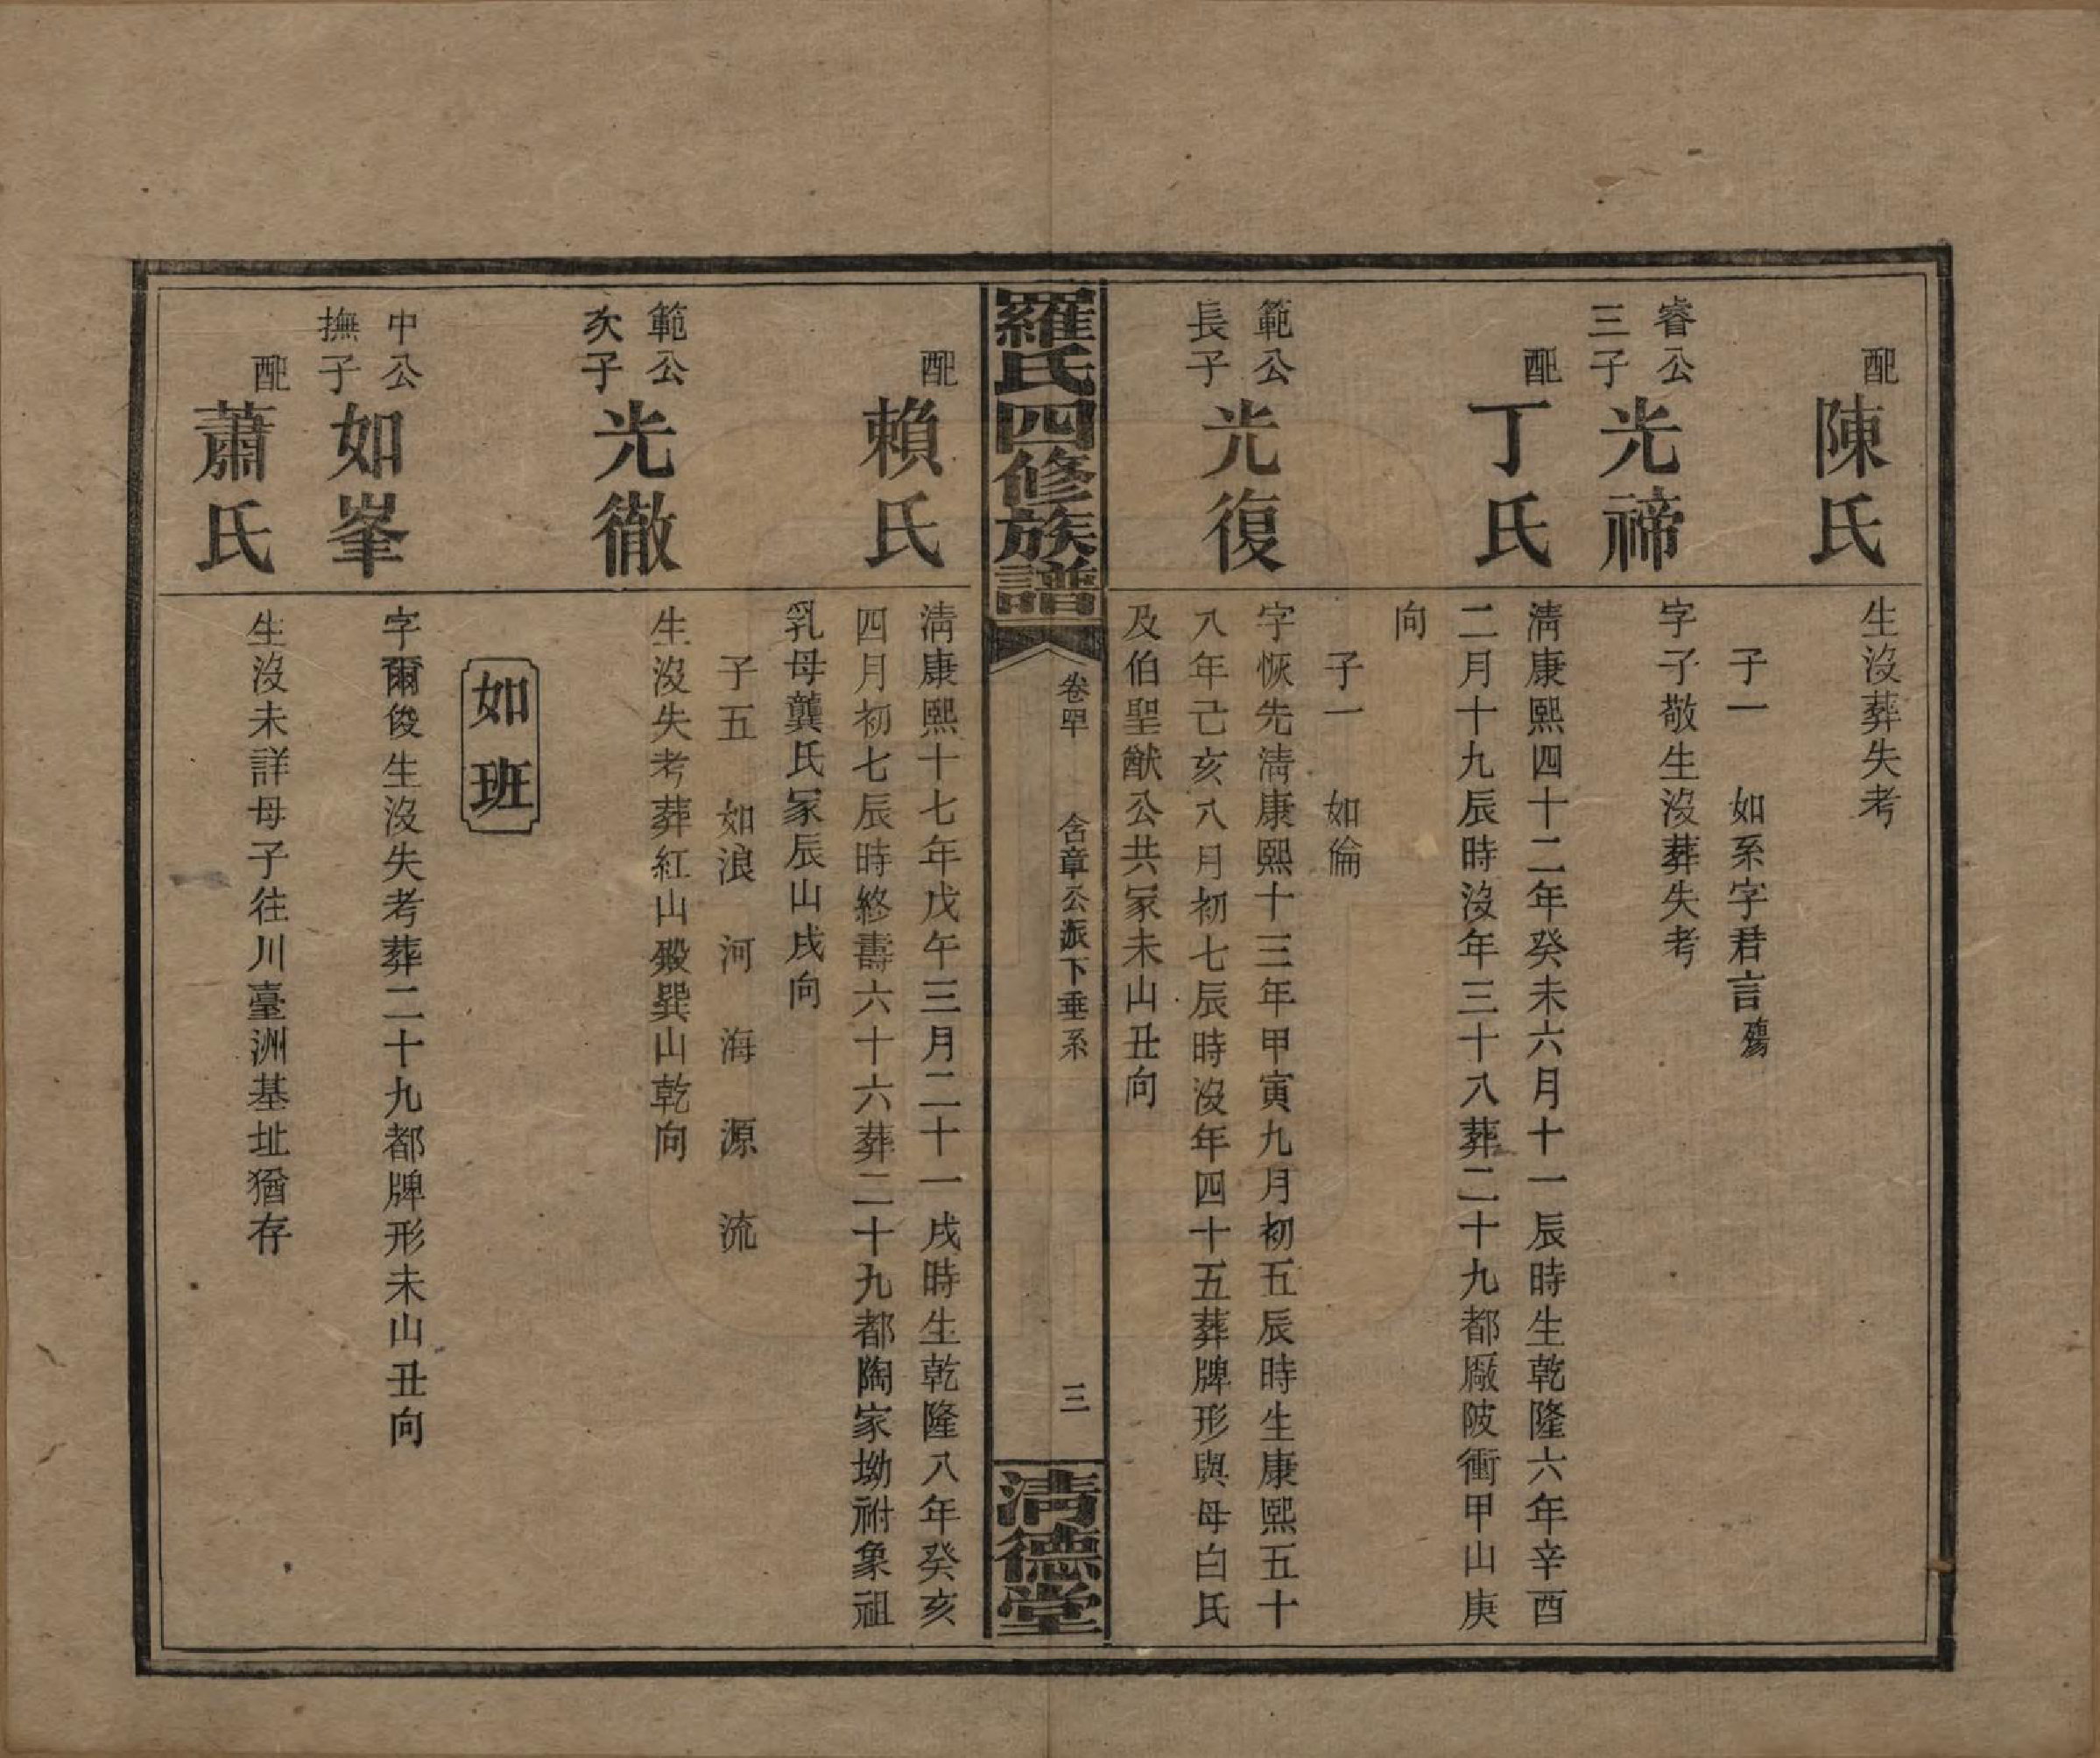 配
陳氏
生沒葬失考
子一　如系字君言殤
睿公
三子
光禘
字子敬生沒葬失考
配
丁氏
淸康熙四十二年癸未六月十一辰時生乾隆六年辛酉
二月十九辰時沒年三十八葬二十九都廠陂衝甲山庚
向
子一　如倫
範公
長子
光復
字恢先淸康熙十三年甲寅九月初五辰時生康熙五十
八年己亥八月初七辰時沒年四十五葬牌形與母白氏
及伯聖猷公共冢未山丑向
羅氏四修族譜
卷四十　含章公派下垂系　三
淸德堂
配
賴氏
淸康熙十七年戊午三月二十一戌時生乾隆八年癸亥
四月初七辰時終壽六十六葬二十九都陶家坳祔象祖
乳母龔氏冢辰山戌向
子五　如浪　河　海　源　流
範公
次子
光徹
生沒失考葬紅山殿巽山乾向
如班
中公
撫子
如峯
字爾俊生沒失考葬二十九都牌形未山丑向
配
蕭氏
生沒未詳母子往川臺洲基址猶存